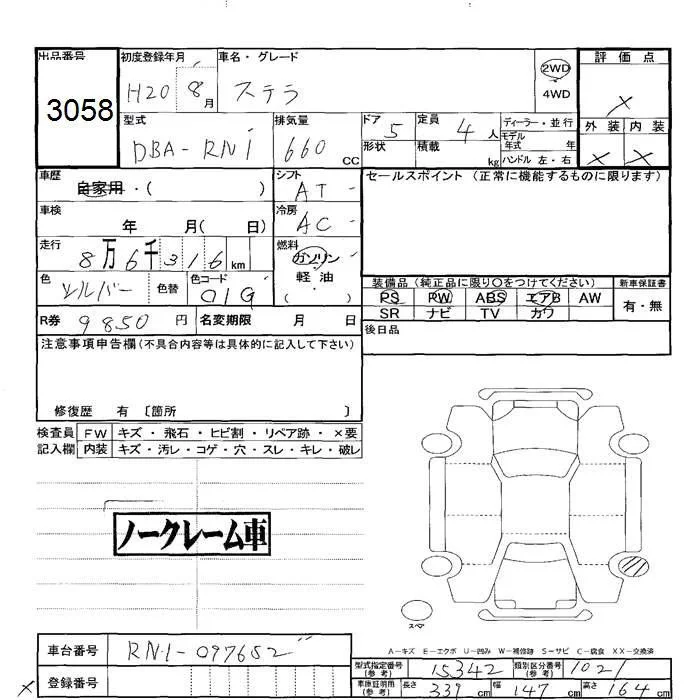 出品番号 初度登録年月 車名・グレード 2WD 評価点
3058 H20 8月 ステラ 4WD ×
型式 排気量 ドア 5 定員 4人 ディーラー・並行 外装 内装
DBA-RN1 660cc 形状 積載 kg モデル年式 年 × ×
ハンドル 左・右
車歴 シフト セールスポイント (正常に機能するものに限ります)
自家用・( ) AT
車検 冷房
年 月( 日) AC
走行 燃料
8万6千316km ガソリン
色 シルバー 色替 色コード 01G 軽油
・( )
装備品 (純正品に限り○をつけてください) 新車保証書
PS PW ABS エアB AW 有・無
SR ナビ TV カワ
R券 9850円 名変期限 月 日 後日品
注意事項申告欄(不具合内容等は具体的に記入して下さい)
修復歴 有 〔箇所 〕
検査員 FW キズ・飛石・ヒビ割・リペア跡・×要
記入欄 内装 キズ・汚レ・コゲ・穴・スレ・キレ・破レ
ノークレーム車
スペア
A-キズ E-エクボ U-凹み W-補修跡 S-サビ C-腐食 XX-交換済
車台番号 RN1-097652 型式指定番号(参考) 15342 類別区分番号(参考) 1021
× 登録番号 車庫証明用(参考) 長さ 339cm 幅 147cm 高さ 164cm